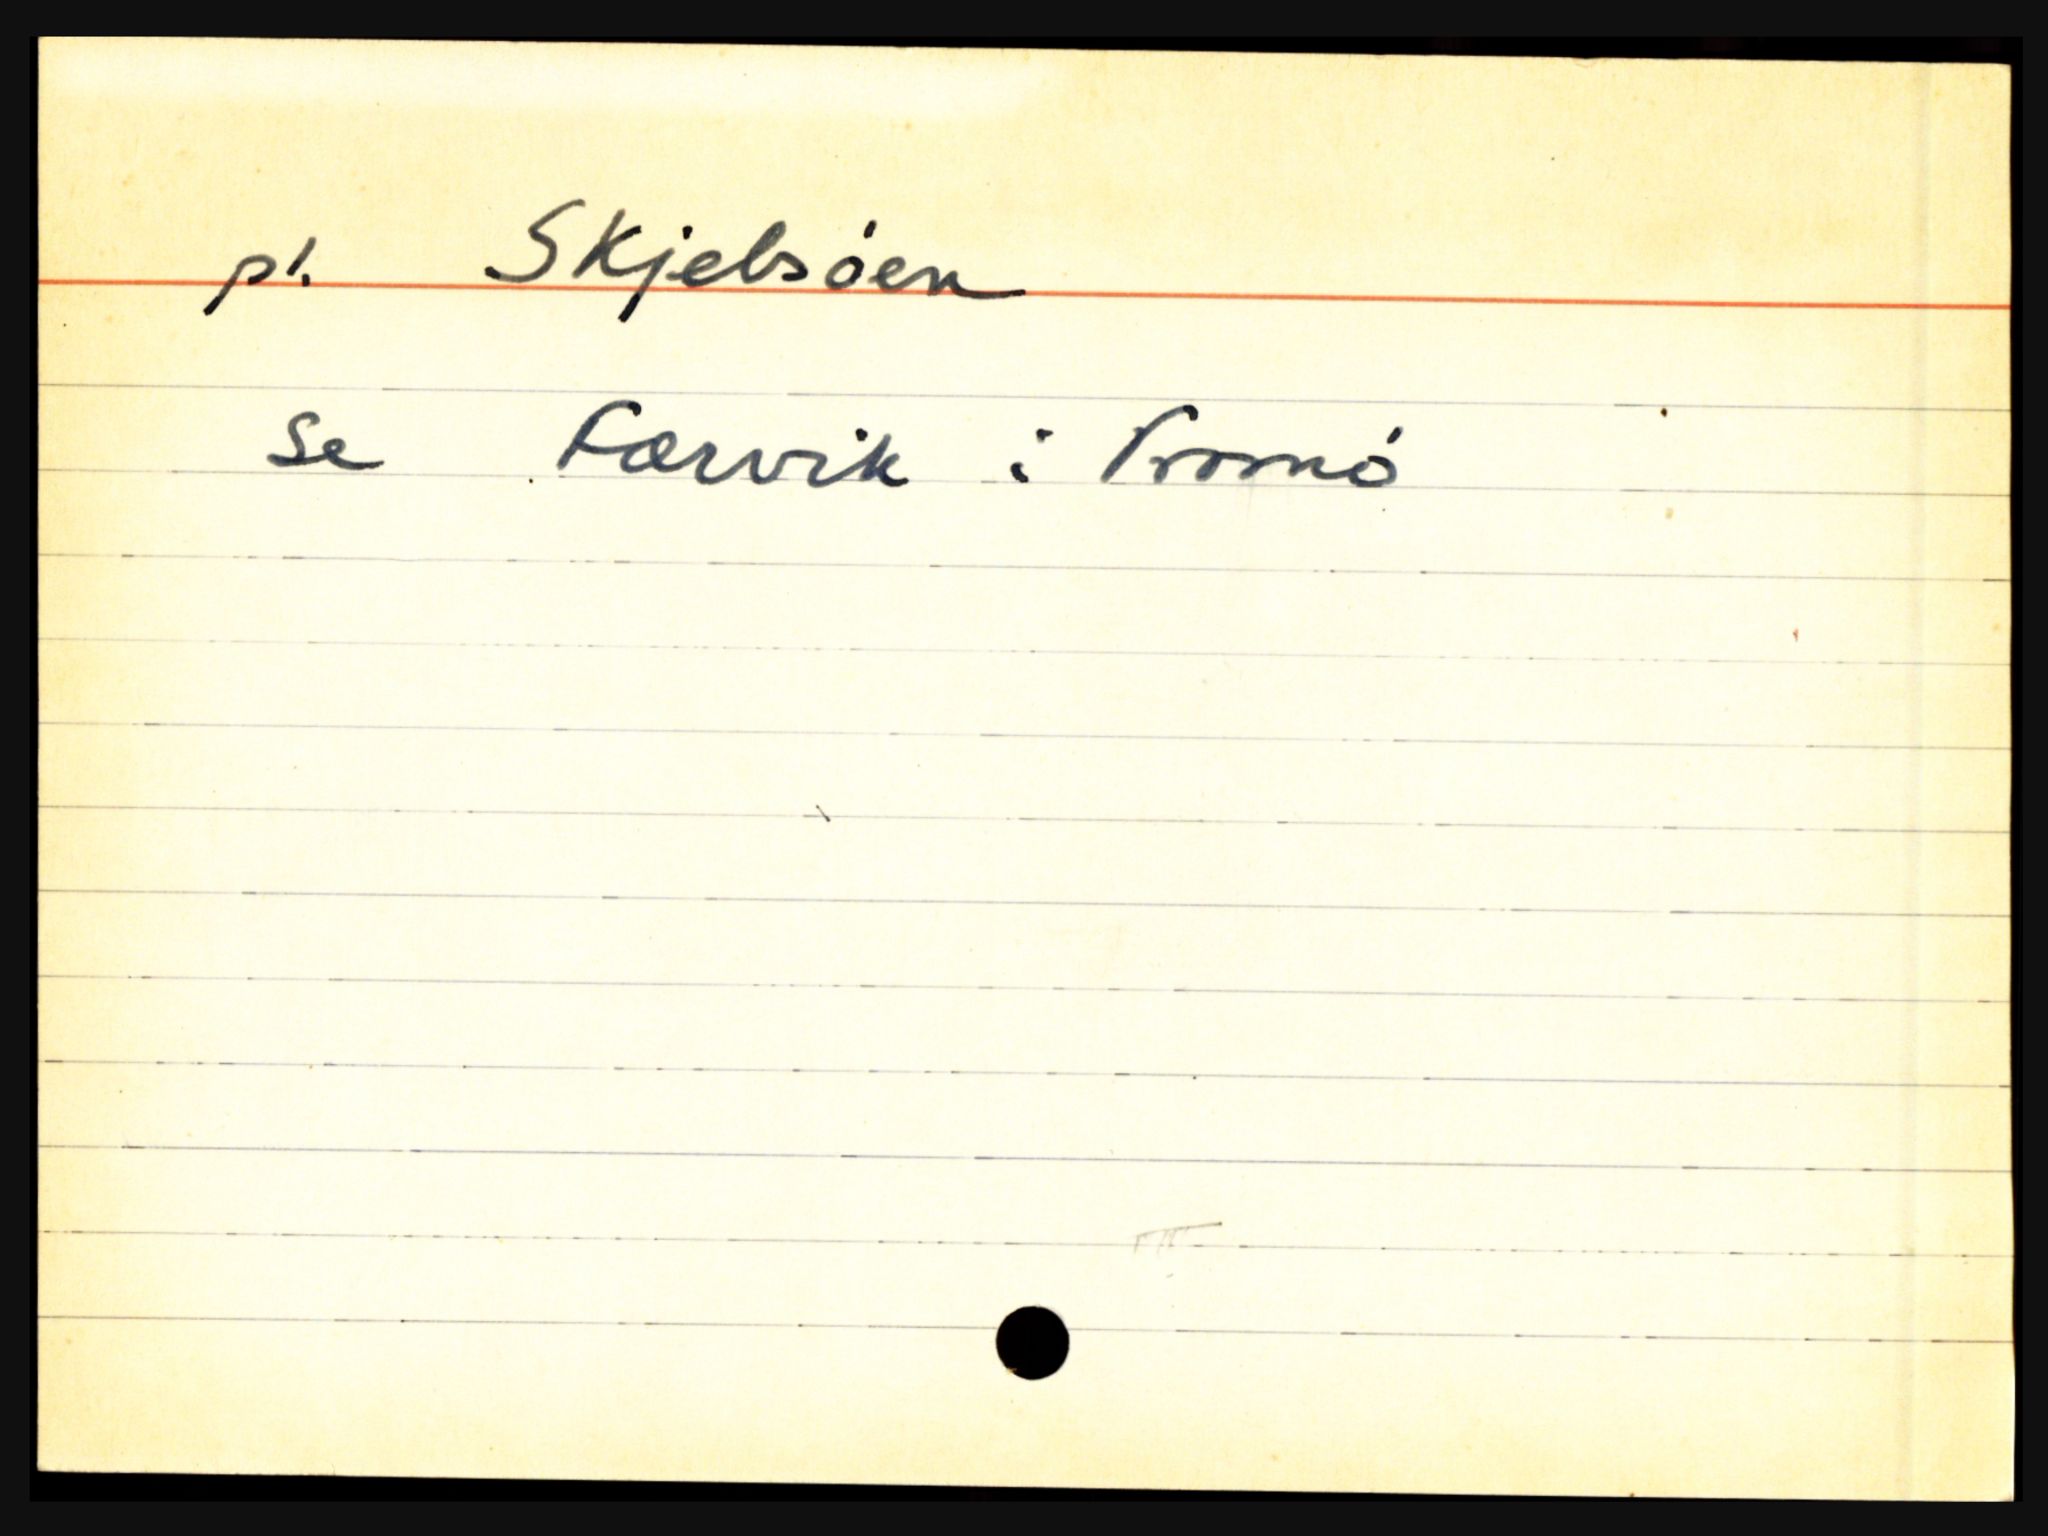 pl. Skjelsöen
se Færvik i Tromö